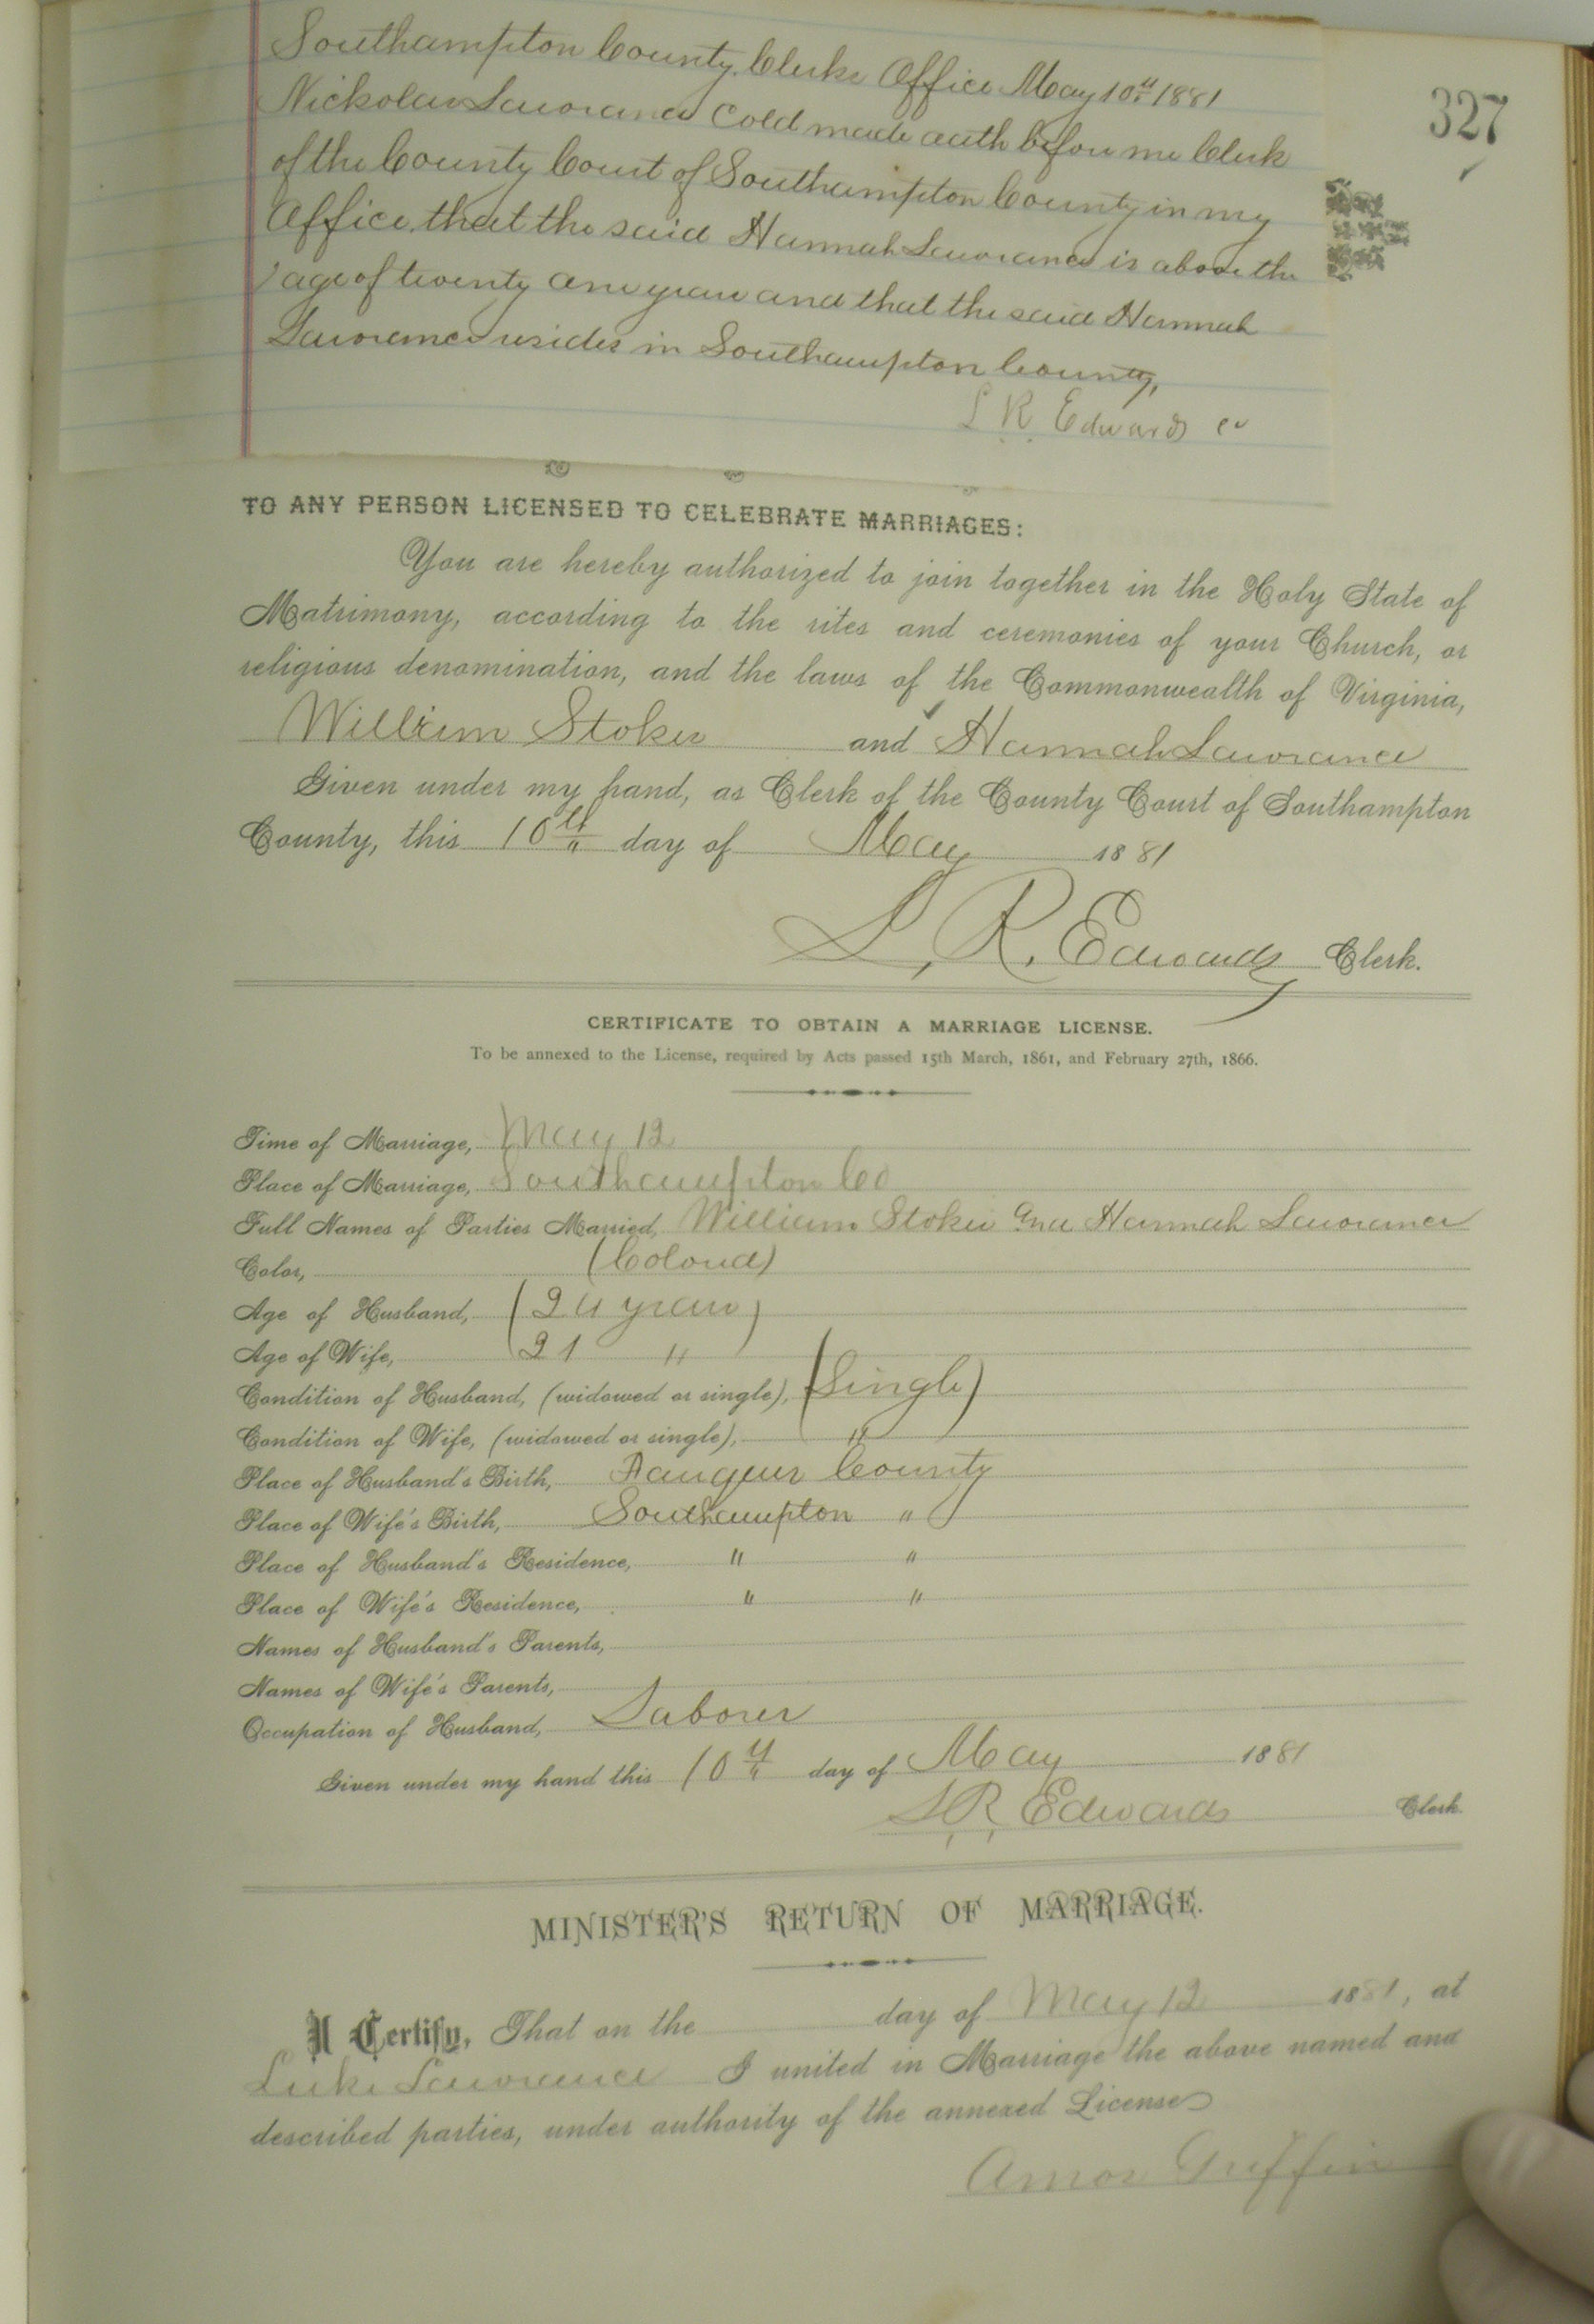 327
Southampton County Clerks Office May 10th 1881
Nickolas Lawrance Cold made oath before me Clerk
of the County Court of Southampton County in my
Office that the said Hannah Lawrance is above the
age of twenty one years and that the said Hannah
Lawrance resides in Southampton County,
L R Edwards
TO ANY PERSON LICENSED TO CELEBRATE MARRIAGES:
You are hereby authorized to join together in the Holy State of
Matrimony, according to the rites and ceremonies of your Church, or
religious denomination, and the laws of the Commonwealth of Virginia,
William Stokes and Hannah Lawrance
Given under my hand, as Clerk of the County Court of Southampton
County, this 10th day of May 1881
L, R. Edwards Clerk.
CERTIFICATE TO OBTAIN A MARRIAGE LICENSE.
To be annexed to the License, required by Acts passed 15th March, 1861, and February 27th, 1866.
Time of Marriage, May 12
Place of Marriage, Southampton Co
Full Names of Parties Married, William Stokes and Hannah Lawrance
Color, (Colored)
Age of Husband, (24 years)
Age of Wife, 21 "
Condition of Husband, (widowed or single), (Single)
Condition of Wife, (widowed or single), "
Place of Husband's Birth, County
Place of Wife's Birth, Southampton "
Place of Husband's Residence, " "
Place of Wife's Residence, " "
Names of Husband's Parents,
Names of Wife's Parents,
Occupation of Husband, Laborer
Given under my hand this 10th day of May 1881
L, R, Edwards Clerk.
MINISTER'S RETURN OF MARRIAGE.
I Certify, That on the day of May 12 1881, at
Luke Lawrance I united in Marriage the above named and
described parties, under authority of the annexed License
Amos Griffin